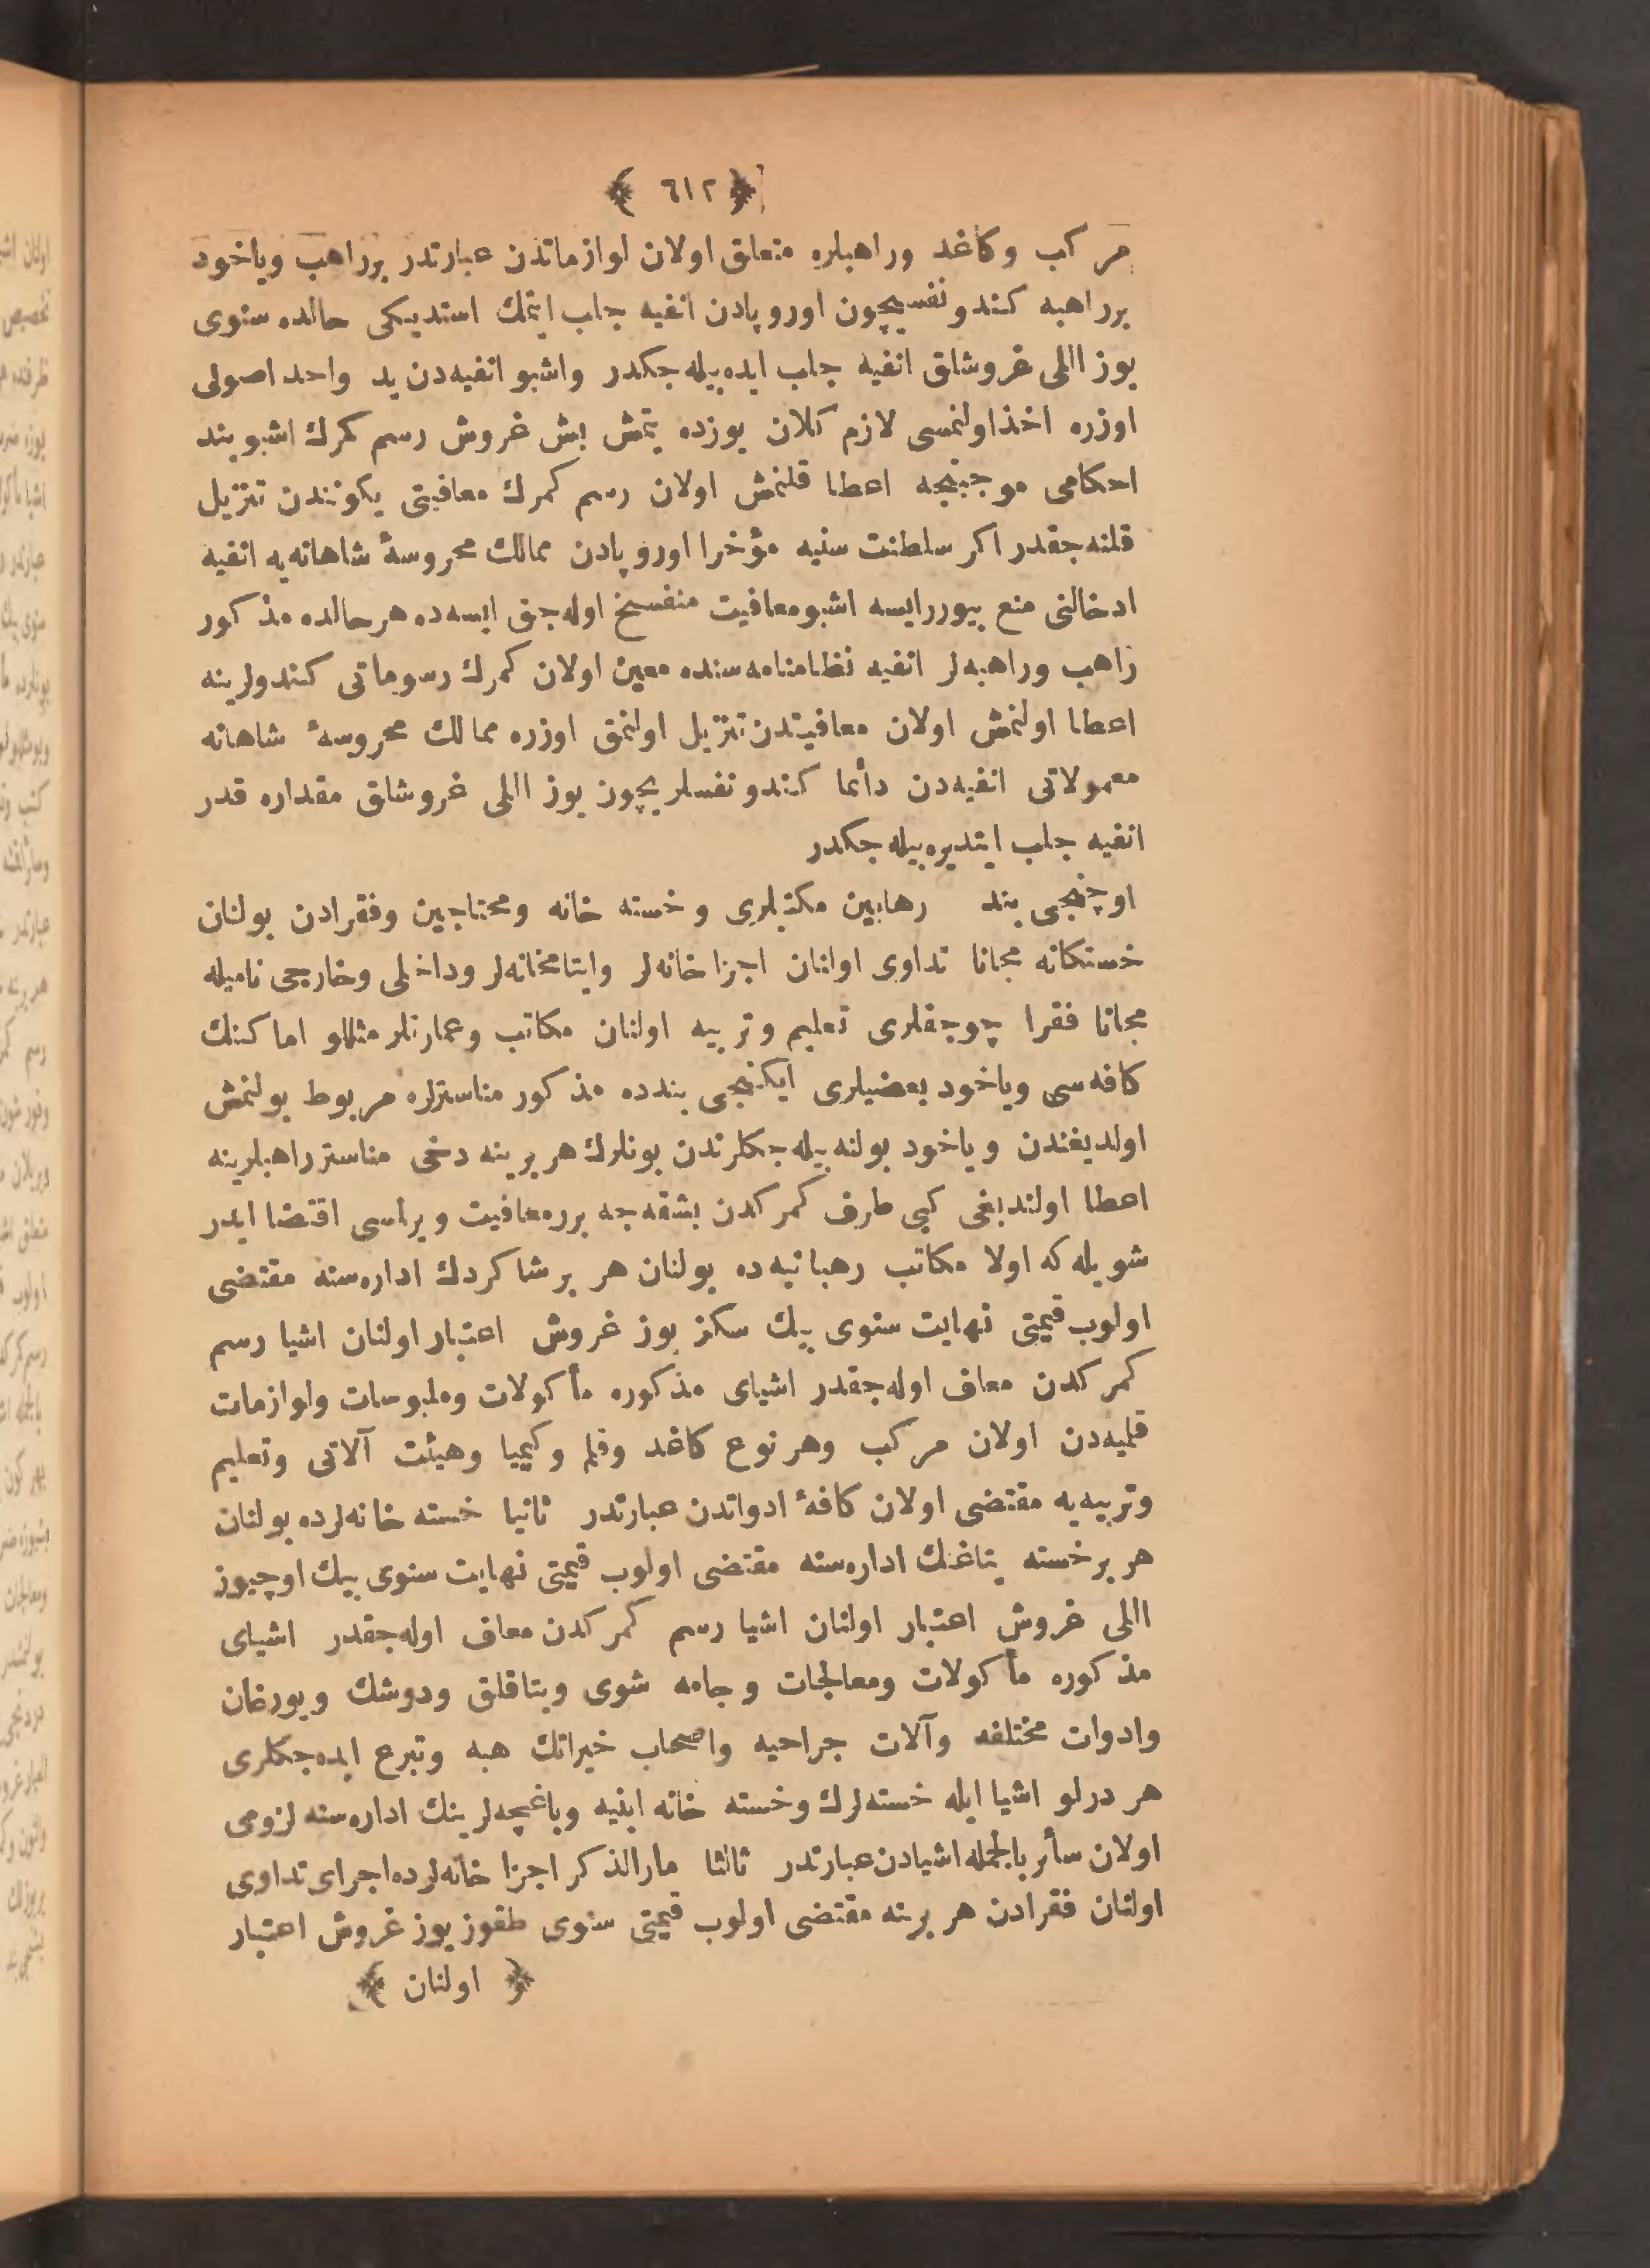 ﴿ ٦١٢ ﴾
مركب وكاغد وراهبلره متعلق اولان لوازماتدن عبارتدر برراهب وياخود
برراهبه كندو نفسيچون اوروپادن انفيه جلب ايتمك استديكى حالده سنوى
يوز اللى غروشلق انفيه جلب ايده‌بيله‌جكدر واشبو انفيه‌دن يد واحد اصولى
اوزره اخذاولنمسى لازم كلان يوزده يتمش بش غروش رسم كمرك اشبو بند
احكامى موجبنجه اعطا قلنمش اولان رسم كمرك معافيتى يكونندن تنزيل
قلنه‌جقدر اكر سلطنت سنيه مؤخرا اوروپادن ممالك محروسهٔ شاهانه‌يه انفيه
ادخالنى منع بيوررايسه اشبومعافيت منفسخ اوله‌جق ايسه‌ده هرحالده مذكور
راهب وراهبه‌لر انفيه نظامنامه‌سنده معين اولان كمرك رسوماتى كندولرينه
اعطا اولنمش اولان معافيتدن تنزيل اولنمق اوزره ممالك محروسهٔ شاهانه
معمولاتى انفيه‌دن دأئما كندو نفسلريچون يوز اللى غروشلق مقداره قدر
انفيه جلب ايتديره‌بيله‌جكدر
اوچنجى بند رهابين مكتبلرى وخسته خانه ومحتاجين وفقرادن بولنان
خستكانه مجانا تداوى اولنان اجزاخانه‌لر وايتامخانه‌لر وداخلى وخارجى ناميله
مجانا فقرا چوجقلرى تعليم وتربيه اولنان مكاتب وعمارتلر مثللو اماكنك
كافه‌سى وياخود بعضيلرى ايكنجى بندده مذكور مناسترلره مربوط بولنمش
اولديغندن وياخود بولنه‌بيله‌جكلرندن بونلرك هربرينه دخى مناستر راهبلرينه
اعطا اولنديغى كبى طرف كمركدن بشقه‌جه بررمعافيت ويرلمسى اقتضا ايدر
شويله‌كه اولا مكاتب رهبانيه‌ده بولنان هر برشاكردك اداره‌سنه مقتضى
اولوب قيمتى نهايت سنوى بيك سكز يوز غروش اعتبار اولنان اشيا رسم
كمركدن معاف اوله‌جقدر اشياى مذكوره مأكولات وملبوسات ولوازمات
قلميه‌دن اولان مركب وهرنوع كاغد وقلم وكيميا وهيئت آلاتى وتعليم
وتربيه‌يه مقتضى اولان كافهٔ ادواتدن عبارتدر ثانيا خسته خانه‌لرده بولنان
هر برخسته يتاغنك اداره‌سنه مقتضى اولوب قيمتى نهايت سنوى بيك اوچيوز
اللى غروش اعتبار اولنان اشيا رسم كمركدن معاف اوله‌جقدر اشياى
مذكوره مأكولات ومعالجات وجامه شوى ويتاقلق ودوشك ويورغان
وادوات مختلفه وآلات جراحيه واصحاب خيراتك هبه وتبرع ايده‌جكلرى
هر درلو اشيا ايله خسته‌لرك وخسته خانه ابنيه وباغچه‌لرينك اداره‌سنه لزومى
اولان سأئر بالجمله اشيادن عبارتدر ثالثا مارالذكر اجزا خانه‌لرده اجراى تداوى
اولنان فقرادن هر برينه مقتضى اولوب قيمتى سنوى طقوز يوز غروش اعتبار
﴿ اولنان ﴾